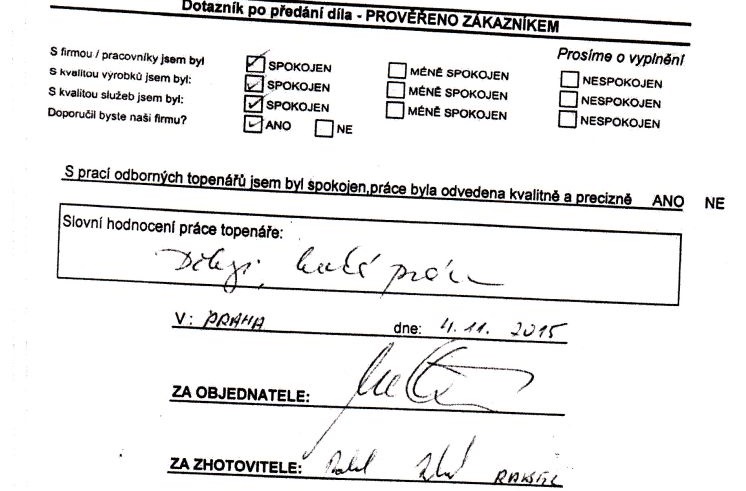 Dotazník po předání díla - PROVĚŘENO ZÁKAZNÍKEM
Prosíme o vyplnění
S firmou / pracovníky jsem byl SPOKOJEN MÉNĚ SPOKOJEN NESPOKOJEN
S kvalitou výrobků jsem byl: SPOKOJEN MÉNĚ SPOKOJEN NESPOKOJEN
S kvalitou služeb jsem byl: SPOKOJEN MÉNĚ SPOKOJEN NESPOKOJEN
Doporučil byste naší firmu? ANO NE
S prací odborných topenářů jsem byl spokojen,práce byla odvedena kvalitně a precizně ANO NE
Slovní hodnocení práce topenáře:
Děkuji, práce
V: PRAHA dne: 4. 11. 2015
ZA OBJEDNATELE:
ZA ZHOTOVITELE: